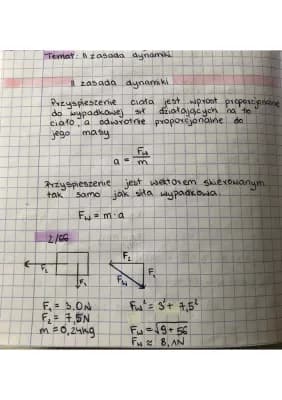 Temat: II zasada dynamiki
II zasada dynamiki
Przyspieszenie ciała jest wprost proporcjonalne
do wypadkowej sił działających na to
ciało, a odwrotnie proporcjonalne do
jego masy
a = Fw/m
Przyspieszenie jest wektorem skierowanym
tak samo jak siła wypadkowa.
Fw = m·a
2/66
F₂
F₁
F₂
F₁
Fw
F₁ = 3,0N
F₂ = 7,5N
m = 0,24kg
Fw² = 3² + 7,5²
Fw = √9+56
Fw ≈ 8,1N